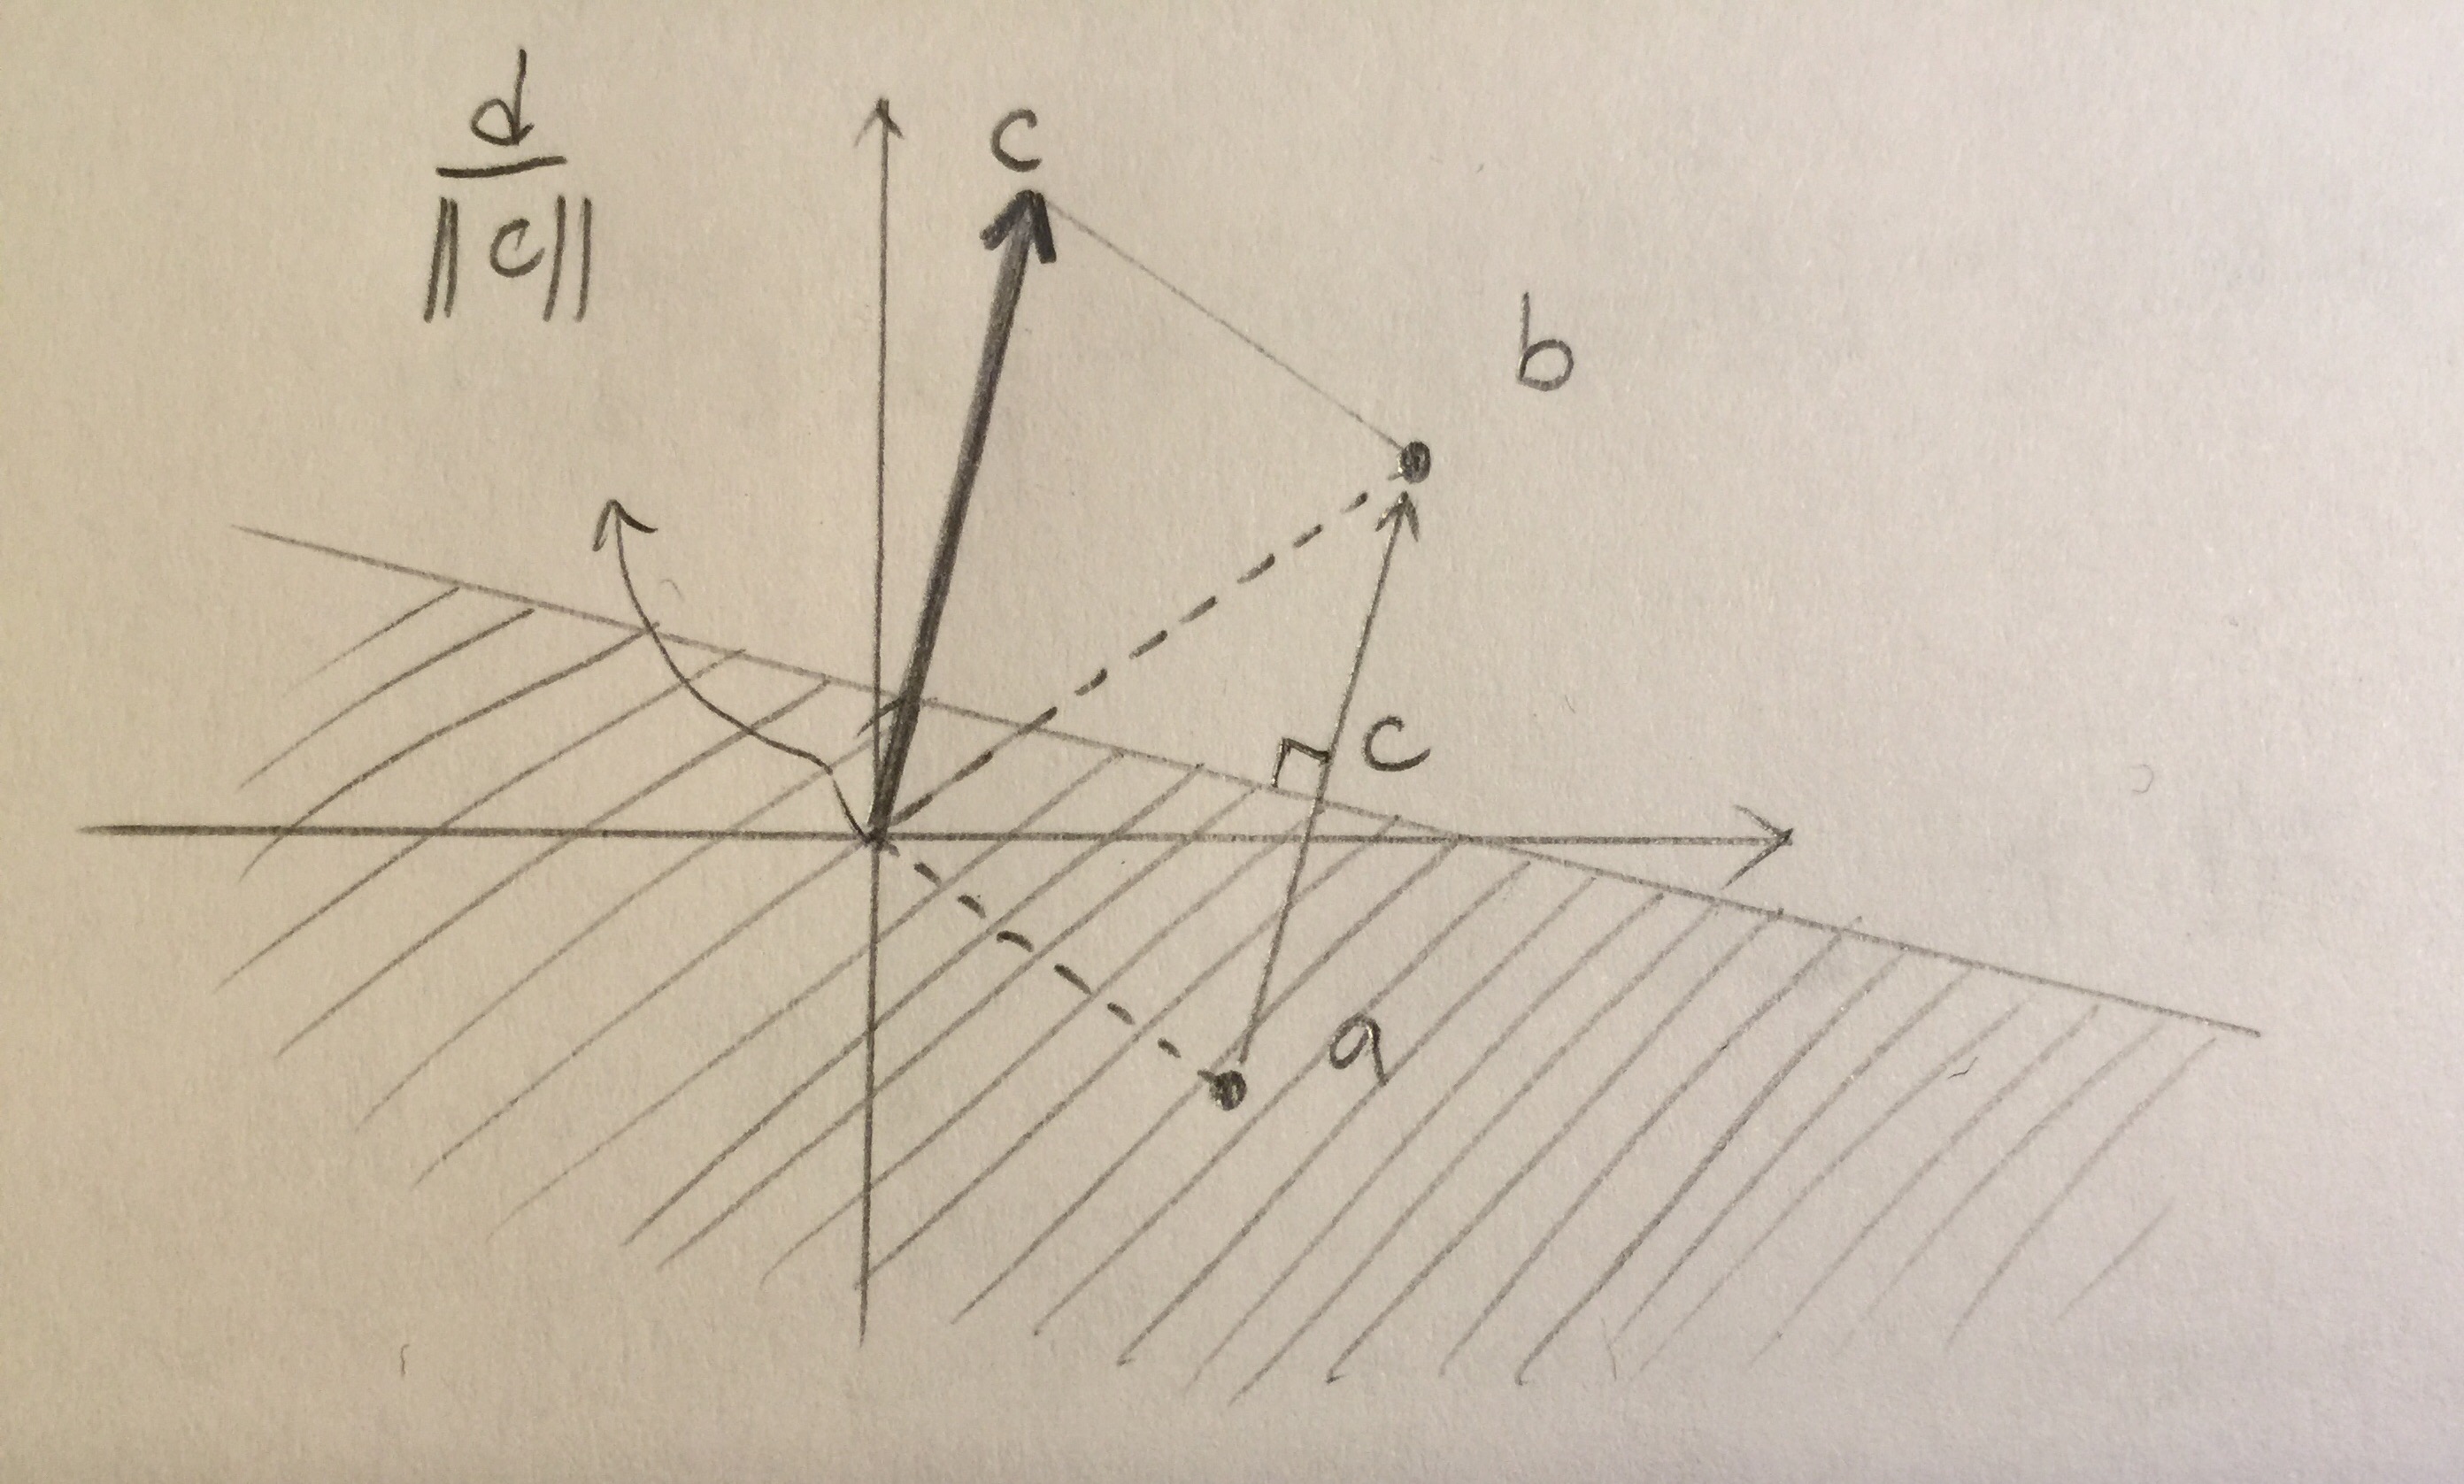 d
||c||
c
b
c
a